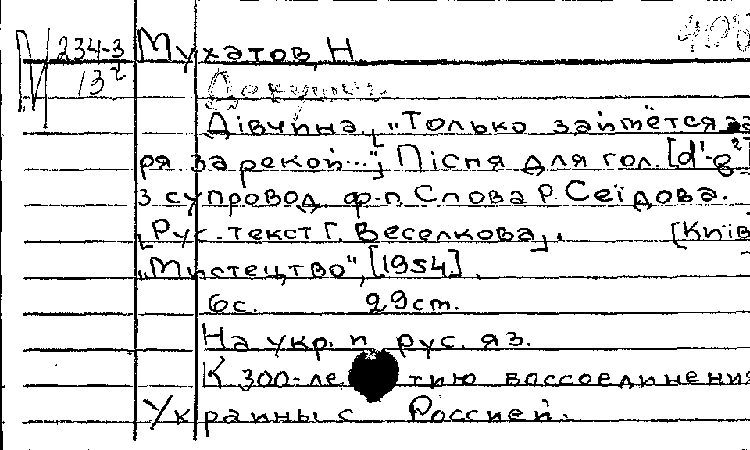 М 234-3 Мухатов, Н. 406
13²
Документ
Дівчина. [„Только займётся за
ря за рекой..."] Пісня для гол. [d'-g²]
з супровод. ф-п. Слова Р. Сеїдова.
[Рус. текст Г. Веселкова]. [Київ]
„Мистецтво", [1954].
6с. 29 cm.
На укр. и рус. яз.
К 300-летию воссоединения
Украины с Россией.